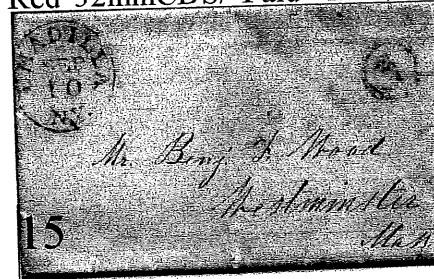 Red 32mmCDS/ Paid
UNADILLA
SEP
10
N.Y.
Mr. Benj F. Wood
Westminster
Mass
15